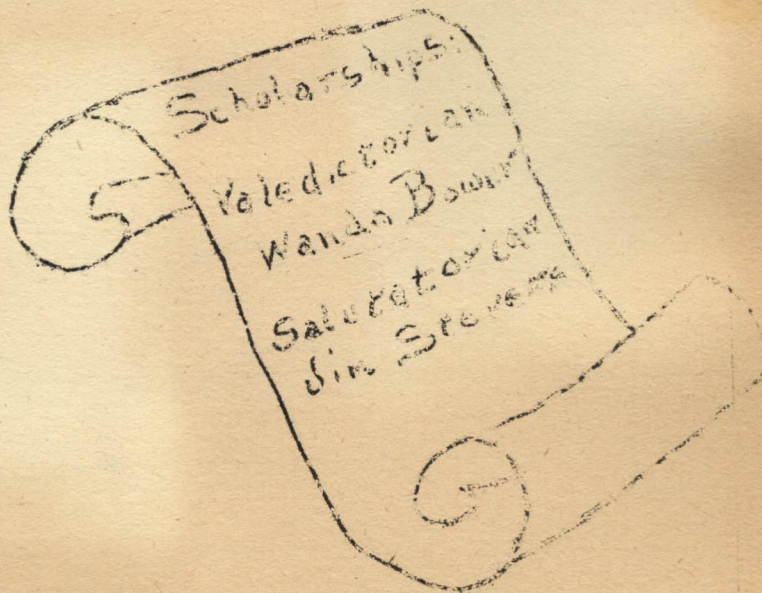 Scholarships:
Valedictorian
Wanda Bower
Salutatorian
Jim Stevens